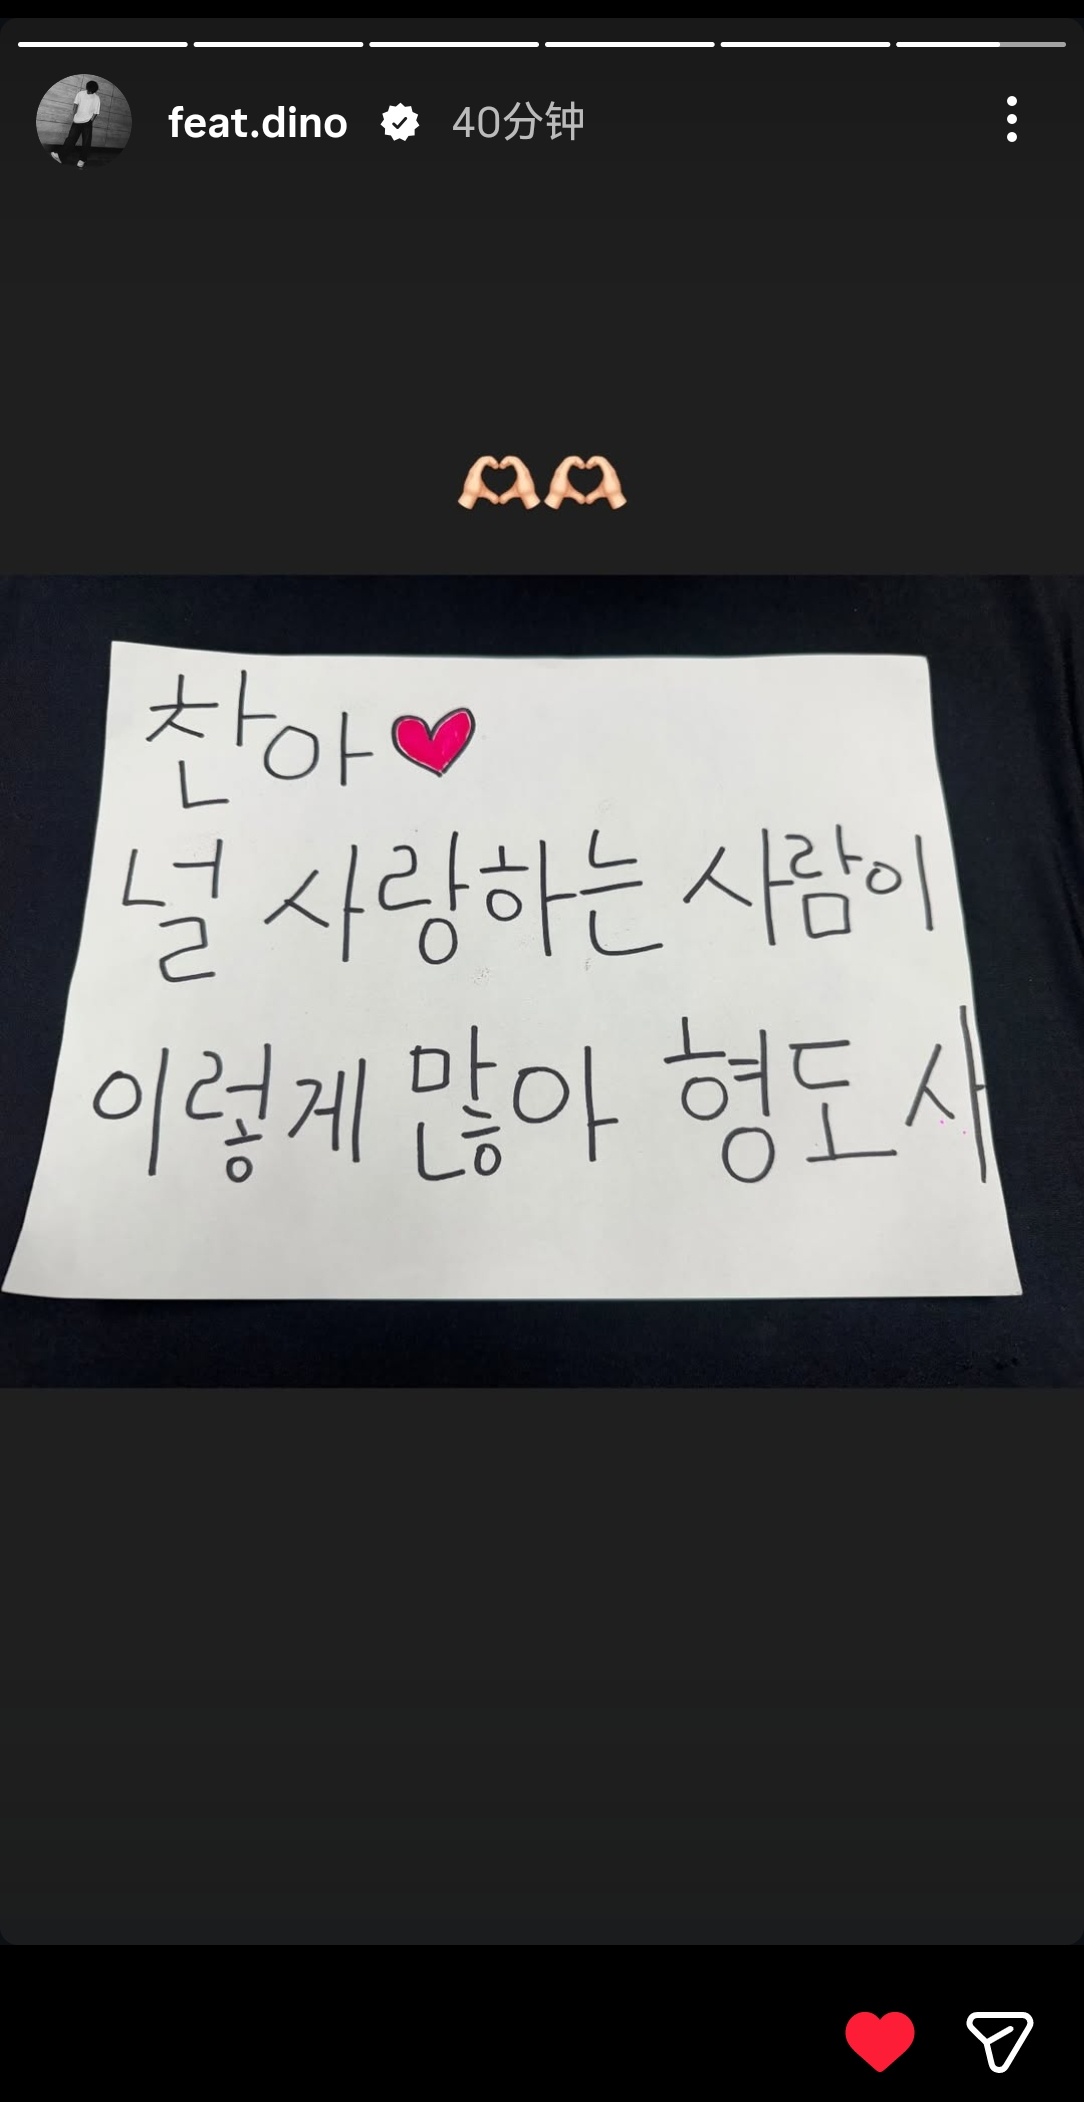 feat.dino 40分钟
🫶🏻🫶🏻
찬아♥
널 사랑하는 사람이
이렇게 많아 형도 사